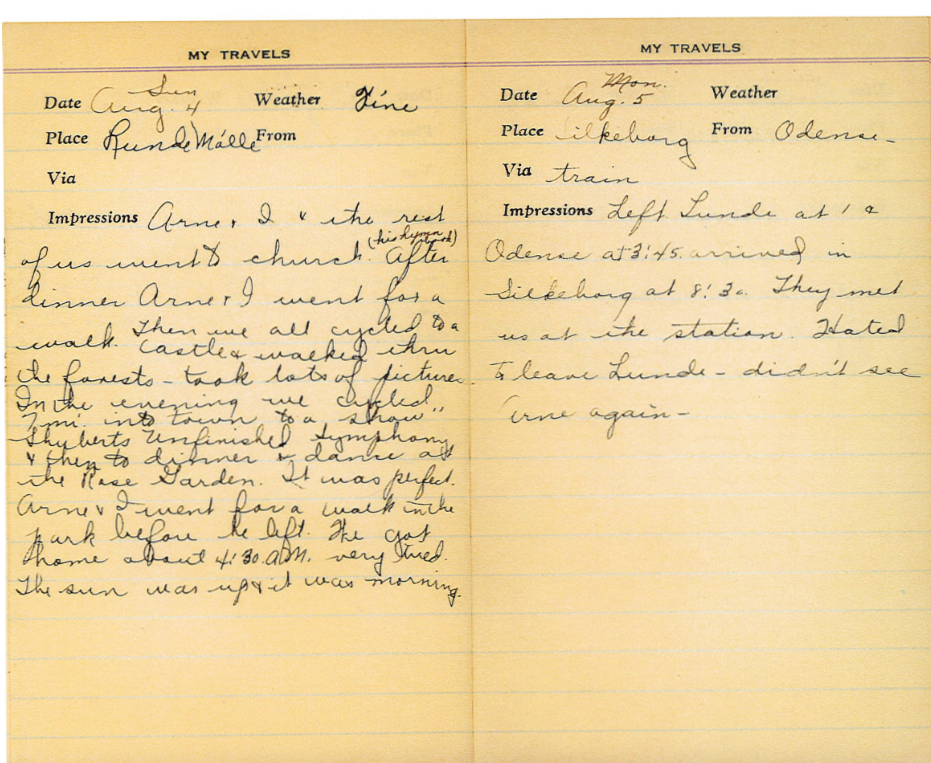 MY TRAVELS
Sun
Date Aug. 4 Weather Fine
Place Lunde Mölle From
Via
Impressions Arne & I & the rest
(his hymn book)
of us went to church. After
dinner Arne & I went for a
walk. Then we all cycled to a
castle & walked thru
the forests - took lots of pictures.
In the evening we cycled
7 mi. into town to a show "
Shuberts Unfinished Symphony
& then to dinner & dance at
the Rose Garden. It was perfect.
Arne & I went for a walk in the
park before he left. We got
home about 4:30 A.M. very tired.
The sun was up & it was morning.
MY TRAVELS
Mon.
Date Aug. 5 Weather
Place Silkeborg From Odense -
Via train
Impressions Left Lunde at 1 &
Odense at 3:45. arrived in
Silkeborg at 8:30. They met
us at the station. Hated
to leave Lunde - didn't see
Arne again -